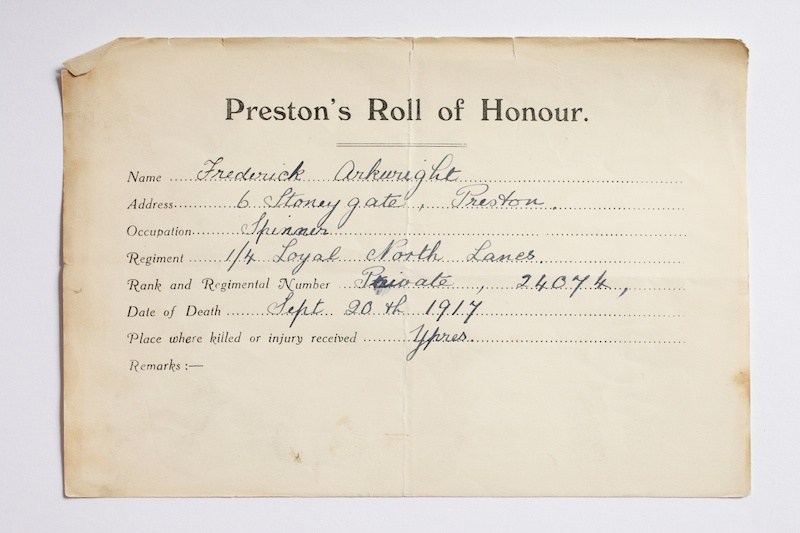 Preston's Roll of Honour.
Name ..... Frederick Arkwright
Address..... 6 Stoneygate, Preston.
Occupation..... Spinner
Regiment ..... 1/4 Loyal North Lancs.
Rank and Regimental Number ..... Private, 24074,
Date of Death ..... Sept 20th 1917
Place where killed or injury received ..... Ypres.
Remarks :—